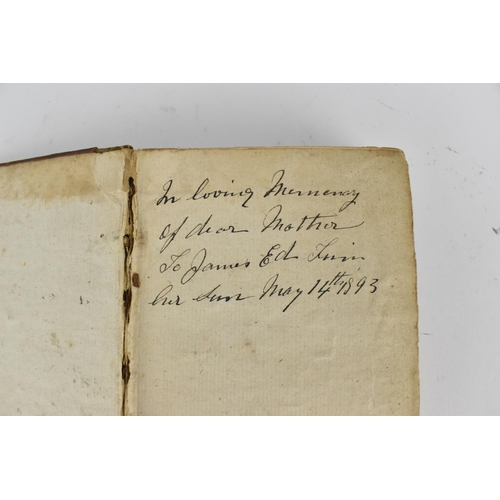 In loving Memenory
of dear Mother
To James Ed
her Sun May 14th 1893